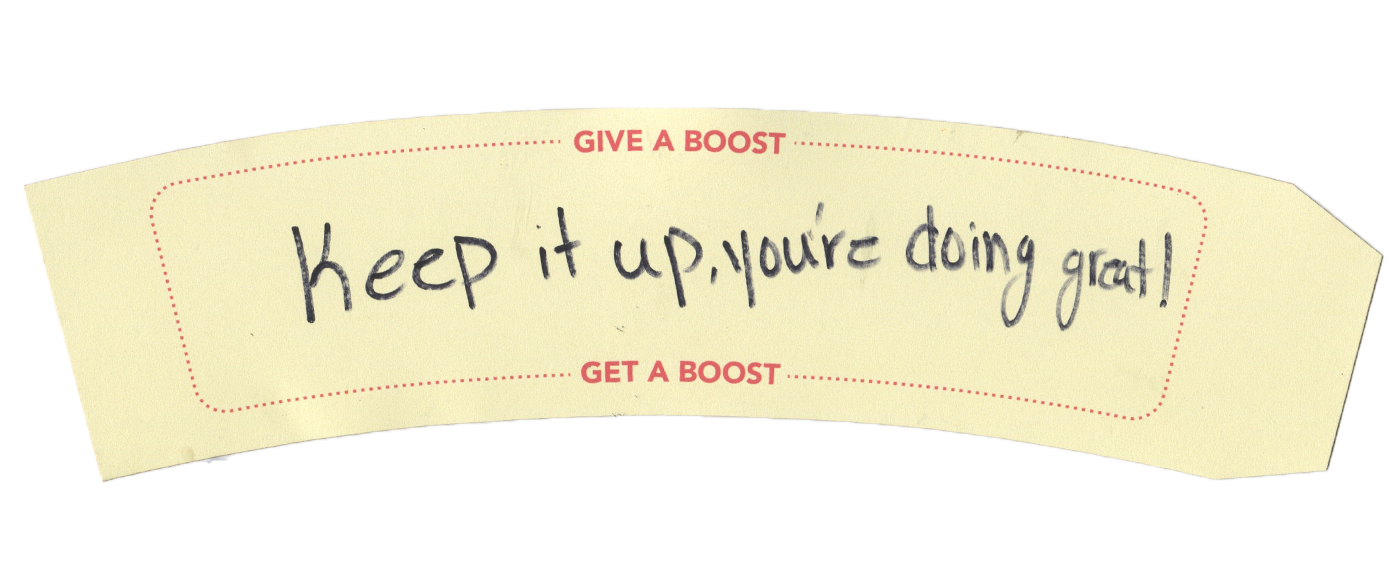 GIVE A BOOST
Keep it up, you're doing great!
GET A BOOST